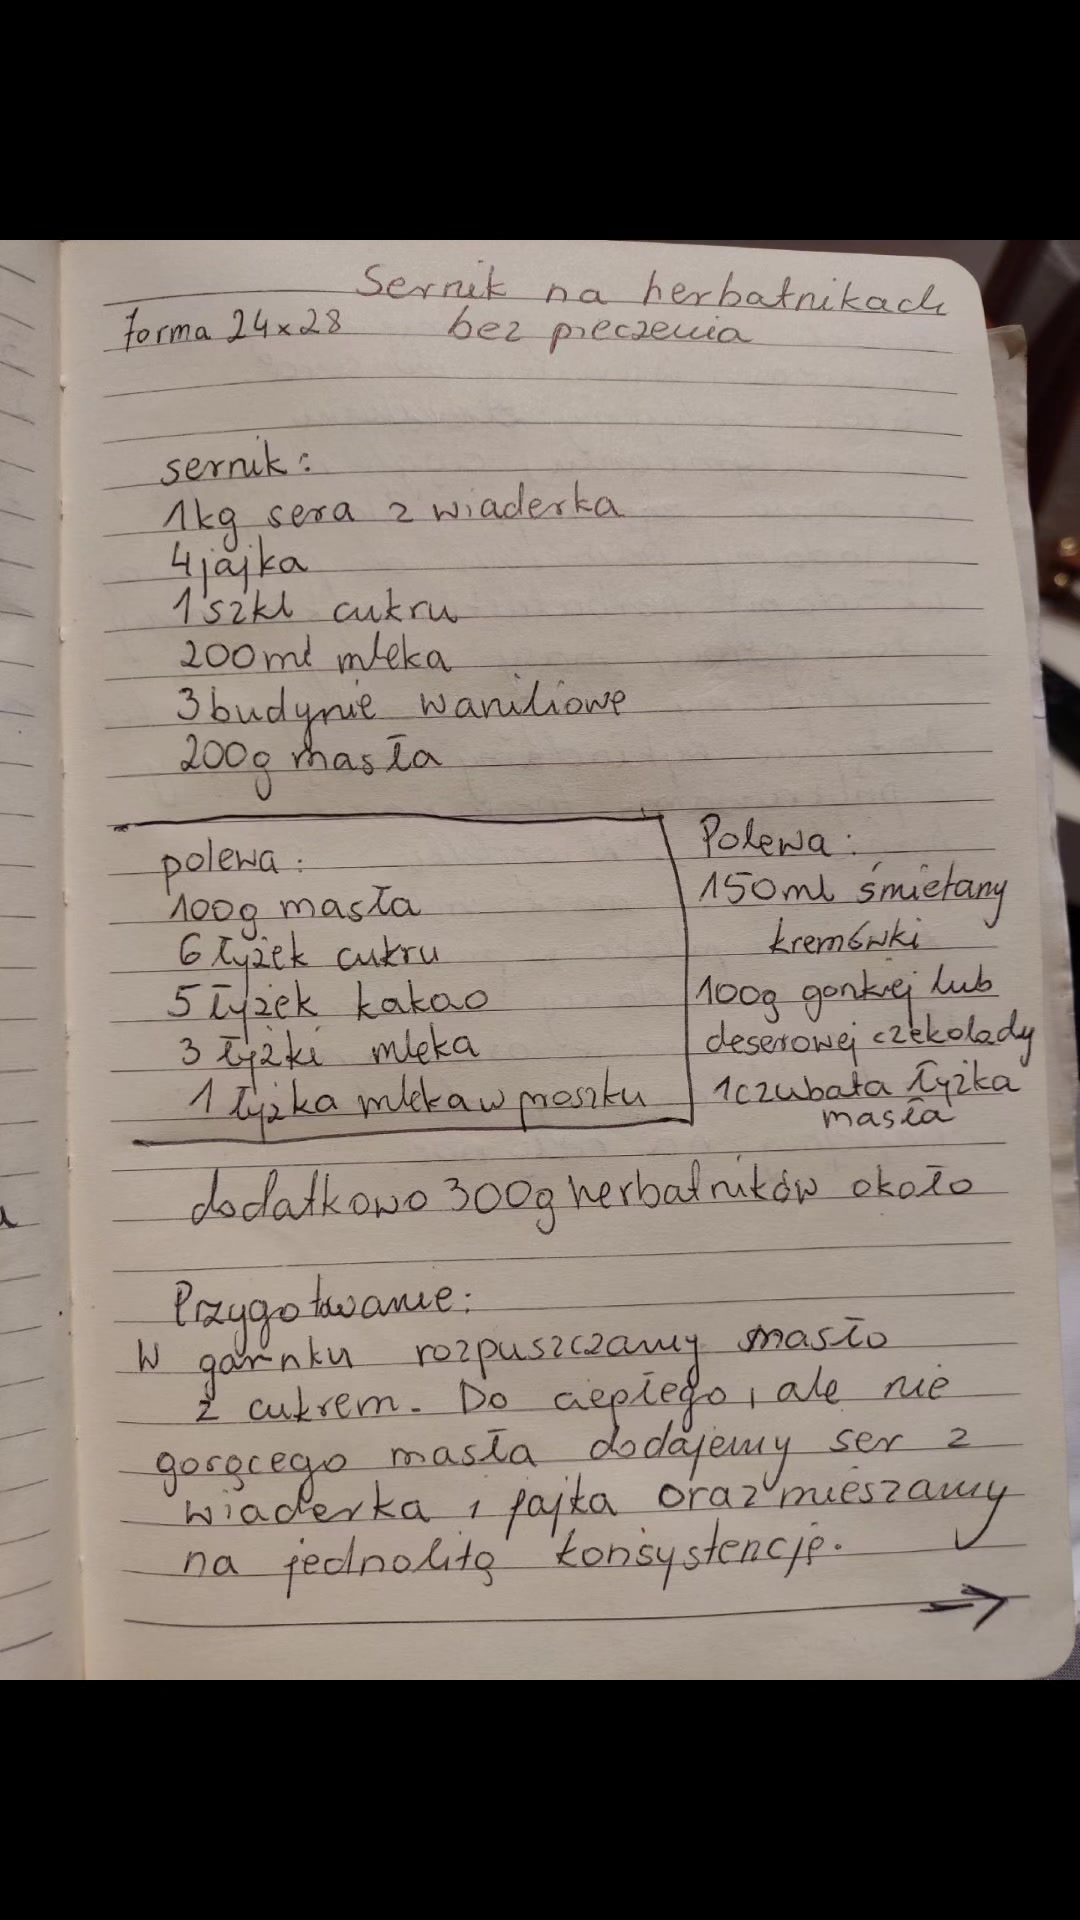 Sernik na herbatnikach
forma 24x28 bez pieczenia
sernik:
1kg sera z wiaderka
4 jajka
1 szkl cukru
200ml mleka
3 budynie waniliowe
200g masła
polewa:
100g masła
6 łyżek cukru
5 łyżek kakao
3 łyżki mleka
1 łyżka mleka w proszku
Polewa:
150ml śmietany
kremówki
100g gorzkiej lub
deserowej czekolady
1 czubata łyżka
masła
dodatkowo 300g herbatników około
Przygotowanie:
W garnku rozpuszczamy masło
z cukrem. Do ciepłego, ale nie
gorącego masła dodajemy ser z
wiaderka i jajka oraz mieszamy
na jednolitą konsystencję.
→